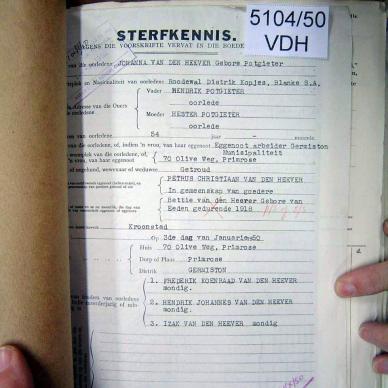 5104/50
VDH
STERFKENNIS.
DIE VOORSKRIFTE VERVAT IN DIE
van die oorledene JOHANNA VAN DEN HEEVER Gebore Potgieter
en Nasionaliteit van oorledene Roodewal Distrik Kopjes, Blanke S.A.
Vader HENDRIK POTGIETER
Adresse van die Ouers oorlede
oorledene Moeder HESTER POTGIETER
oorlede
van oorledene 54 jaar maande.
van die oorledene, of, indien 'n vrou, van haar eggenoot Eggenoot arbeider Germiston
Munisipaliteit
van oorledene
vrou, van haar eggenoot 70 Olive Weg, Primrose
ongehuud, weduwnaar of weduwee Getroud
PETRUS CHRISTIAAN VAN DEN HEEVER
In gemeenskap van goedere
Bettie van den Heever Gebore van
Eeden gedurende 1918
Kroonstad
Op 3de dag van Januarie 50.
Huis 70 Olive Weg, Primrose
Dorp of Plaas Primrose
Distrik GERMISTON
1. FREDERIK KOENRAAD VAN DEN HEEVER
mondig.
2. HENDRIK JOHANNES VAN DEN HEEVER
mondig.
3. IZAK VAN DEN HEEVER mondig